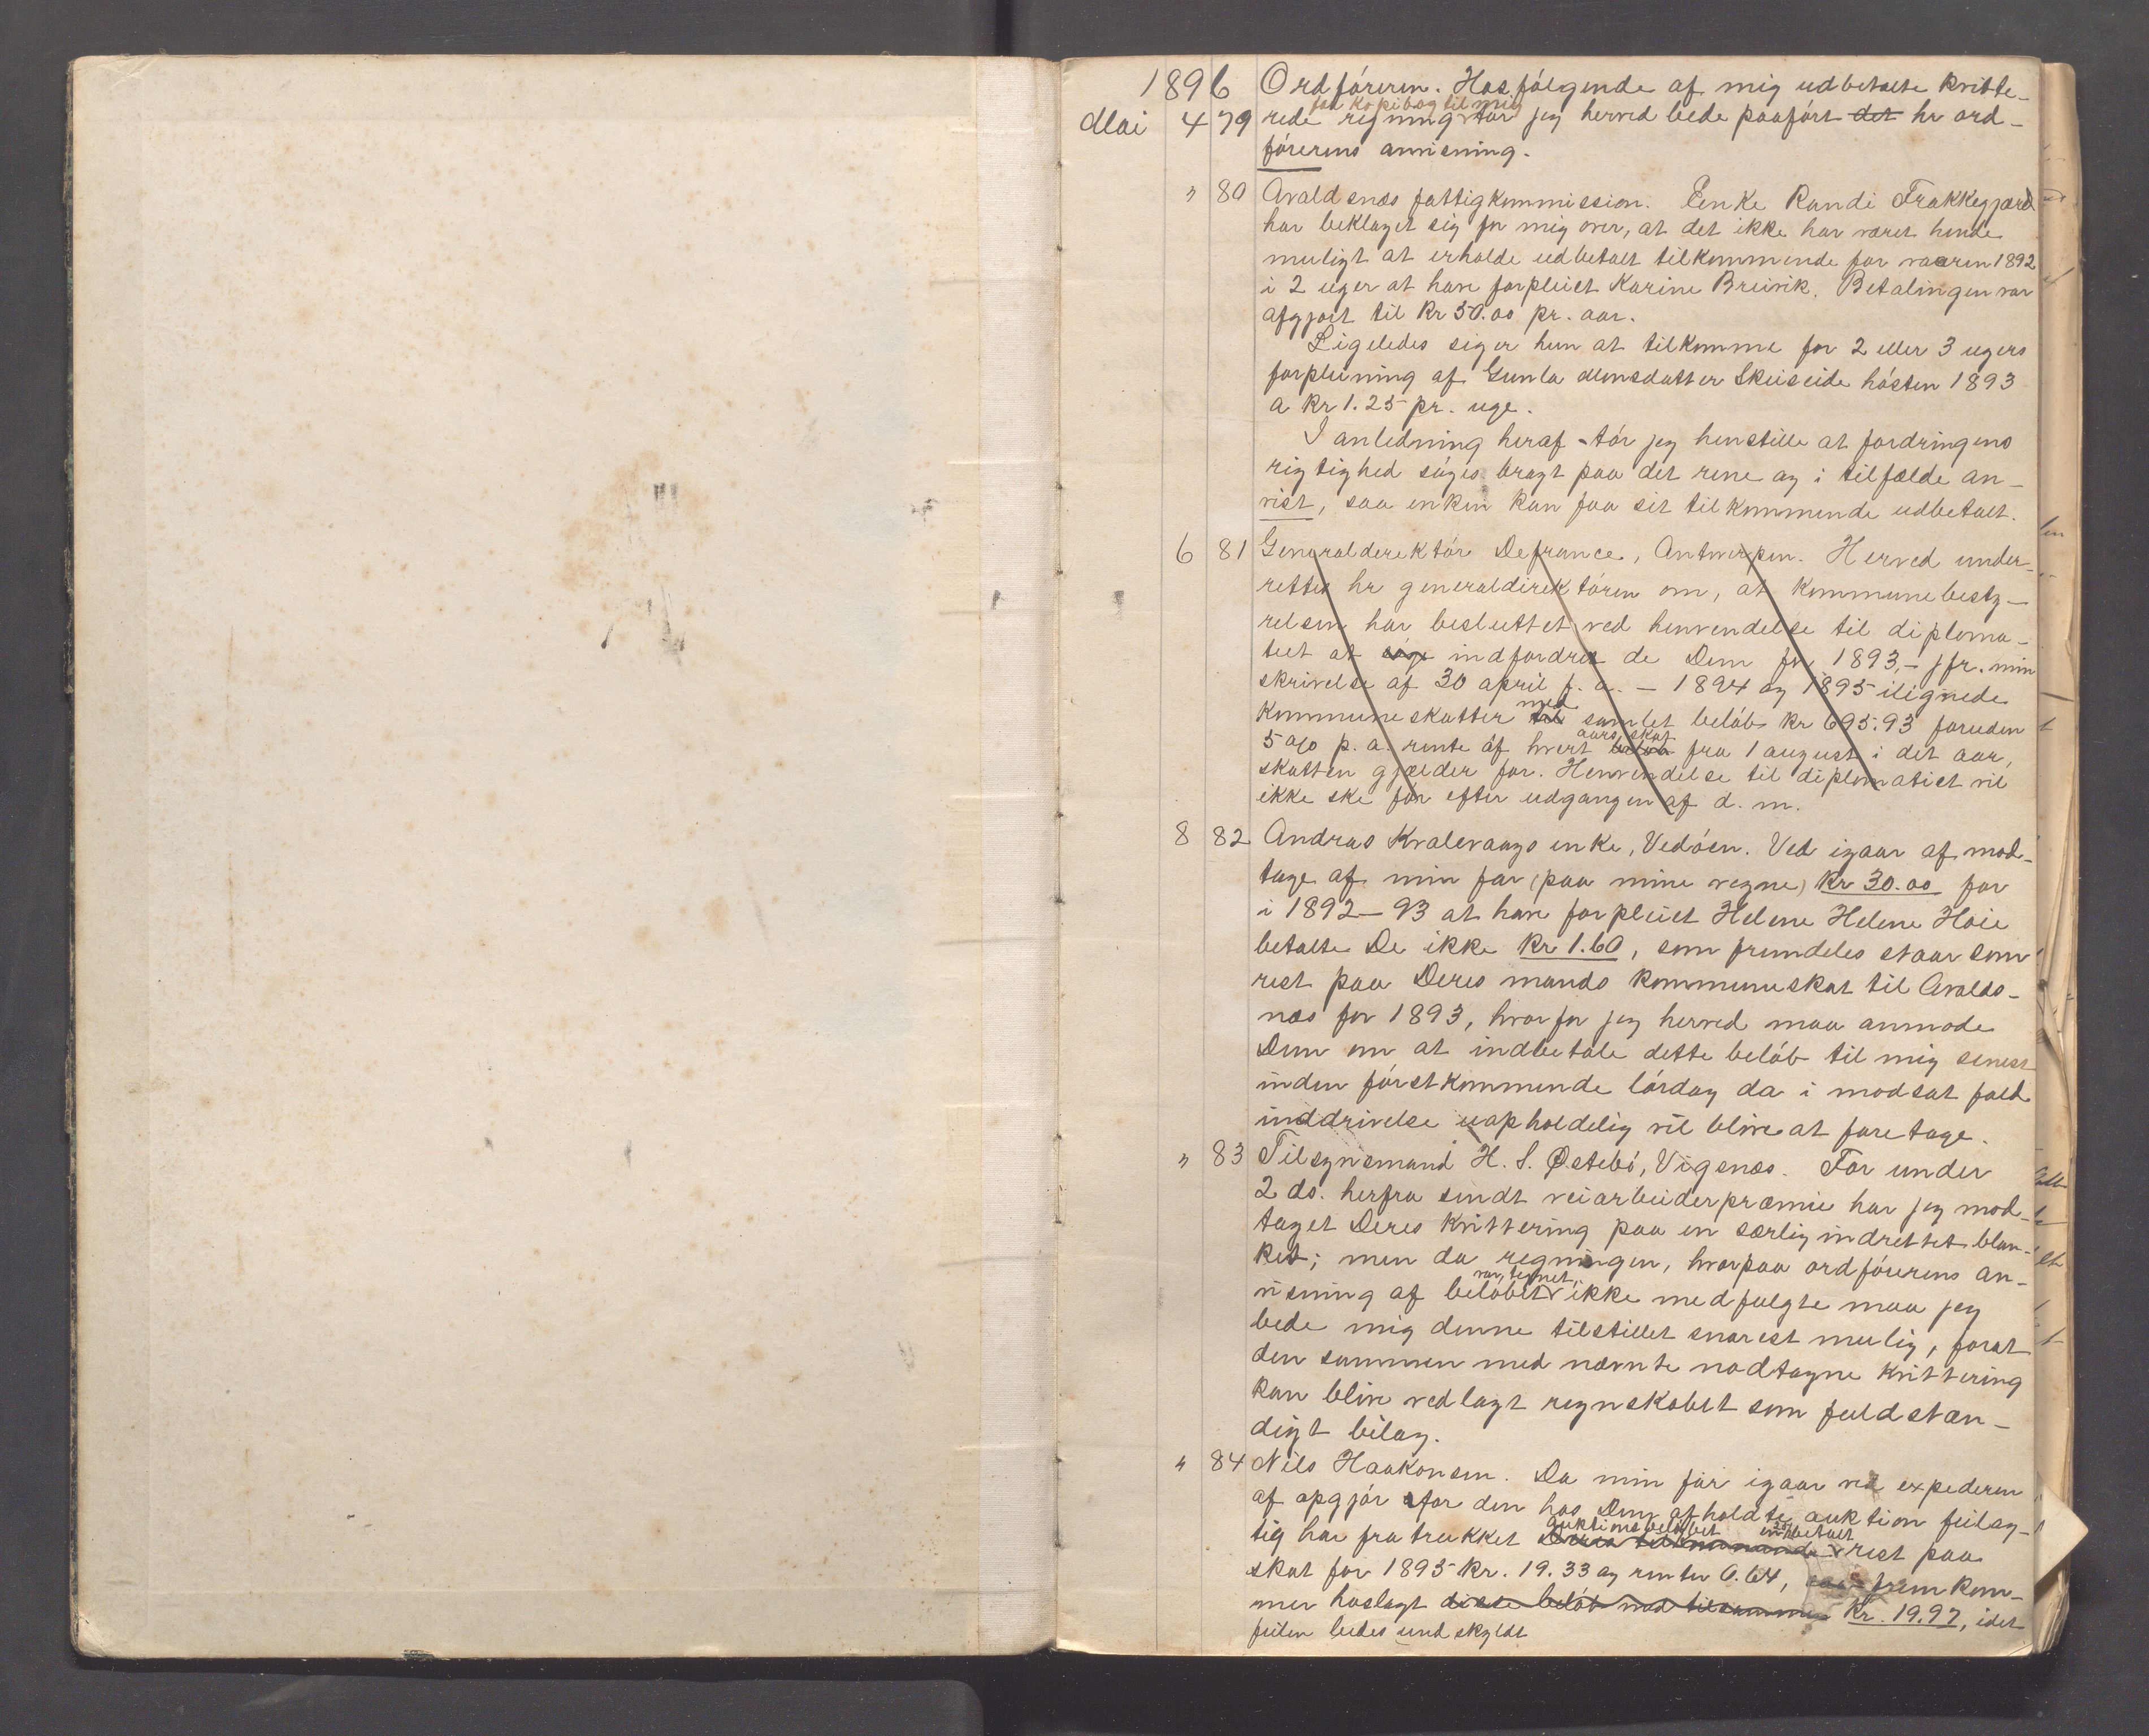 1896 Ordføreren. Hosfølgende af mig udbetalte kvitte-
for kopibog til mig
Mai 4 79 rede regning tør jeg herved bede paaført det hr ord-
førerens anvisning.
" 80 Avaldsnæs fattigkommission. Enke Randi Frakkegjærd
har beklaget sig for mig over, at det ikke har været hende
muligt at erholde udbetalt tilkommende for vaaren 1892
i 2 uger at have forpleiet Karine Breivik. Betalingen var
afgjort til Kr 50.00 pr. aar.
Ligeledes siger hun at tilkomme for 2 eller 3 ugers
forpleining af Gunla Monsdatter Skeiseide høsten 1893
a Kr 1.25 pr. uge.
I anledning heraf tør jeg henstille at fordringens
rigtighed søges bragt paa det rene og i tilfælde an-
vist, saa enken kan faa sit tilkommende udbetalt.
6 81 Generalderektør Defrance, Antwerpen. Herved under-
rettes hr generaldirektøren om, at kommunebesty-
relsen har besluttet ved henvendelse til diploma-
tiet at søge indfordret de Dem for 1893 - jfr. min
skrivelse af 30 april f. a. - 1894 og 1895 ilignede
med
Kommuneskatter til samlet beløb Kr 695.93 foruden
aars skat
5 o/o p. a. rente af hvert beløb fra 1 august i det aar,
skatten gjælder for. Henvendelse til diplomatiet vil
ikke ske før efter udgangen af d. m.
8 82 Andreas Kvalevaags enke, Vedøen. Ved igaar af mod-
tage af min far (paa mine vegne) Kr 30.00 for
i 1892-93 at have forpleiet Helene Helene Hoie
betalte De ikke Kr 1.60, som fremdeles staar som
rest paa Deres mands kommuneskat til Avalds-
næs for 1893, hvorfor jeg herved maa anmode
Dem om at indbetale dette beløb til mig senest
inden førstkommende lørdag da i modsat fald
inddrivelse uopholdelig vil blive at foretage.
" 83 Tilsynsmand H. S. Østebø, Vigsnæs. For under
2 ds. herfra sendt veiarbeiderpræmie har jeg mod-
taget Deres kvittering paa en særlig indrettet blan-
ket; men da regningen, hvorpaa ordførerens an-
var tegnet,
visning af beløbet ikke medfulgte maa jeg
bede mig denne tilstillet snarest mulig, forat
den sammen med nævnte modtagne kvittering
kan blive vedlagt regnskabet som fuldstæn-
digt bilag.
" 84 Nils Haakonsen. Da min far igaar ved expederen
af opgjør for den hos Dem afholdte auktion feilag-
auktionsbeløbet indbetalt
tig har fratrukket Deres tilkommende rest paa
skat for 1895 Kr. 19.33 og renter 0.64, frem kom-
mer hoslagt disse beløb med tilsammen Kr. 19.97, idet
feilen bedes undskyldt